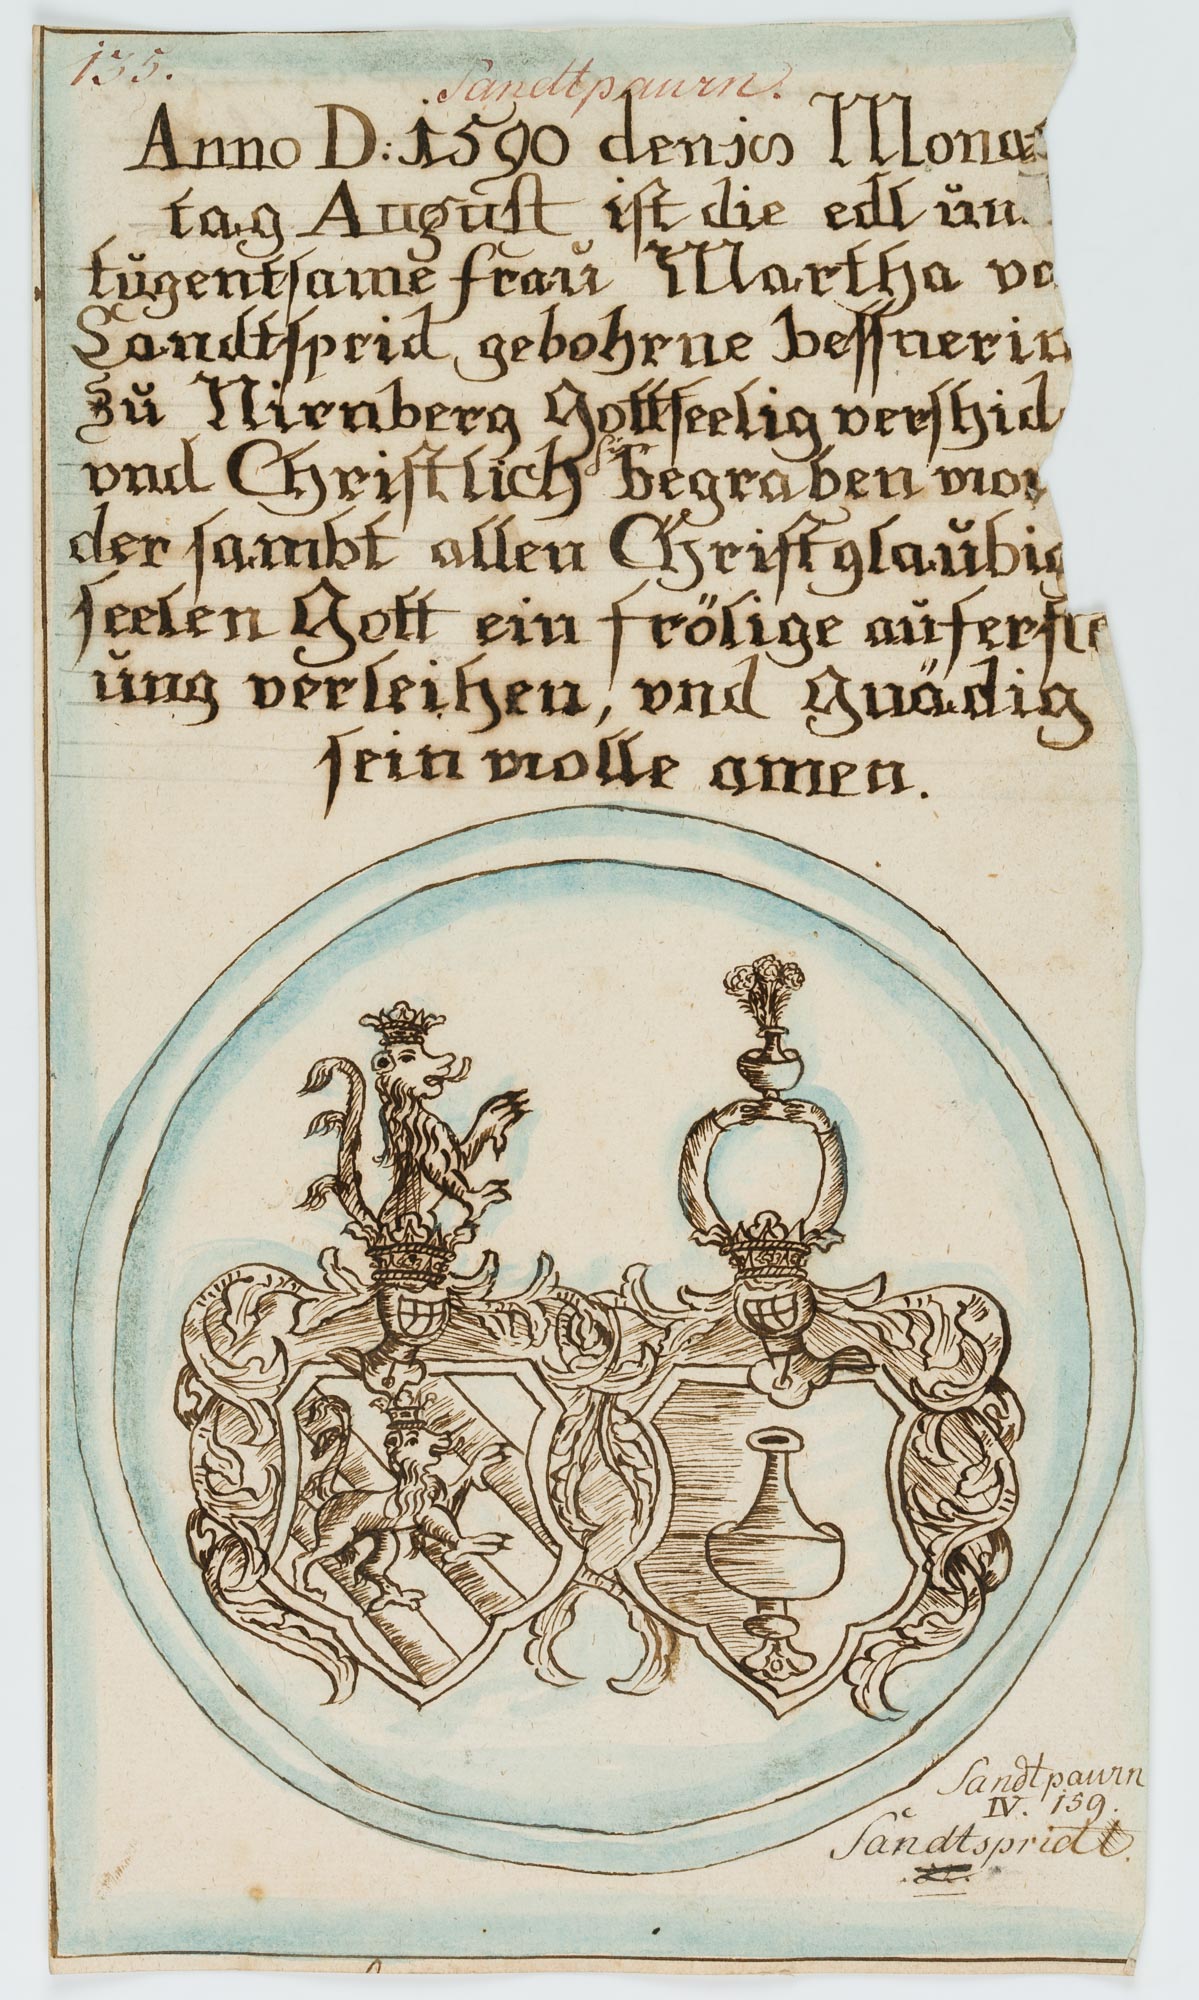 135.
Sandtpaurn.
Anno D: 1590 den
tag August ist die edl ün
tŭgentsame fraŭ Martha vo
Sandtsprid gebohrne bessnerin
zŭ Nirnberg Gottseelig vershid
vnd Christlich begraben wor
der sambt allen Christglaŭbig
seelen Gott ein frölige aŭferste
ŭng verleihen, vnd gnädig
sein wolle amen.
Sandtpaurn
IV. 159.
Sandtspridt.